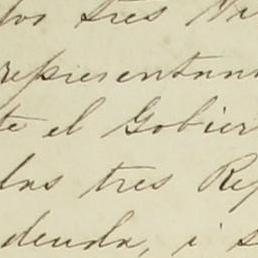 los tres Mi
representan
te el Gobier
las tres Rep
deuda, i s